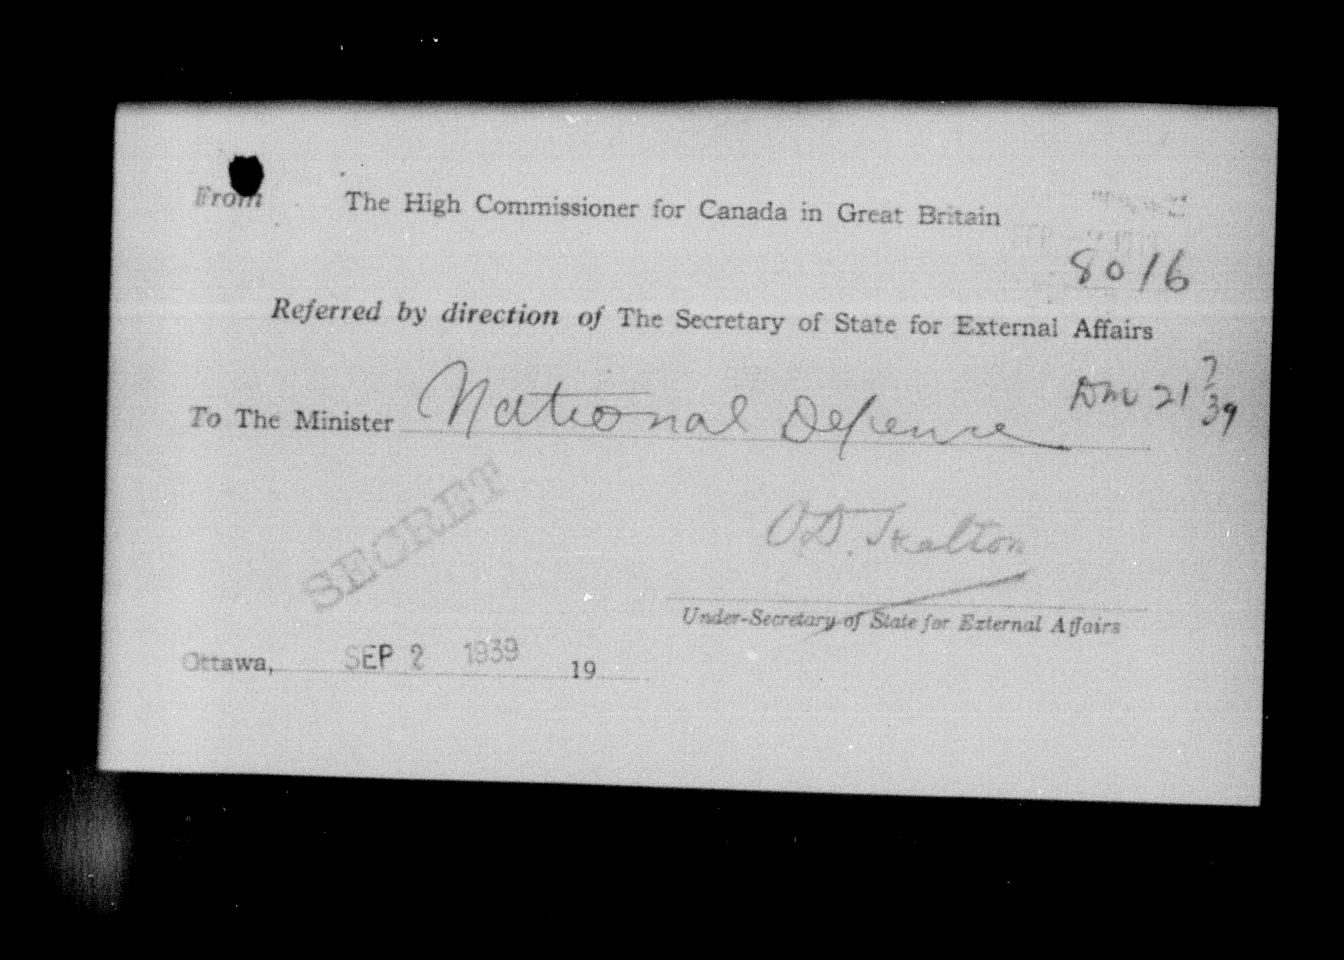 From The High Commissioner for Canada in Great Britain
8016
Referred by direction of The Secretary of State for External Affairs
To The Minister National Defence
21 39
SECRET
O.D. Skelton
Under-Secretary of State for External Affairs
Ottawa, SEP 2 1939 19